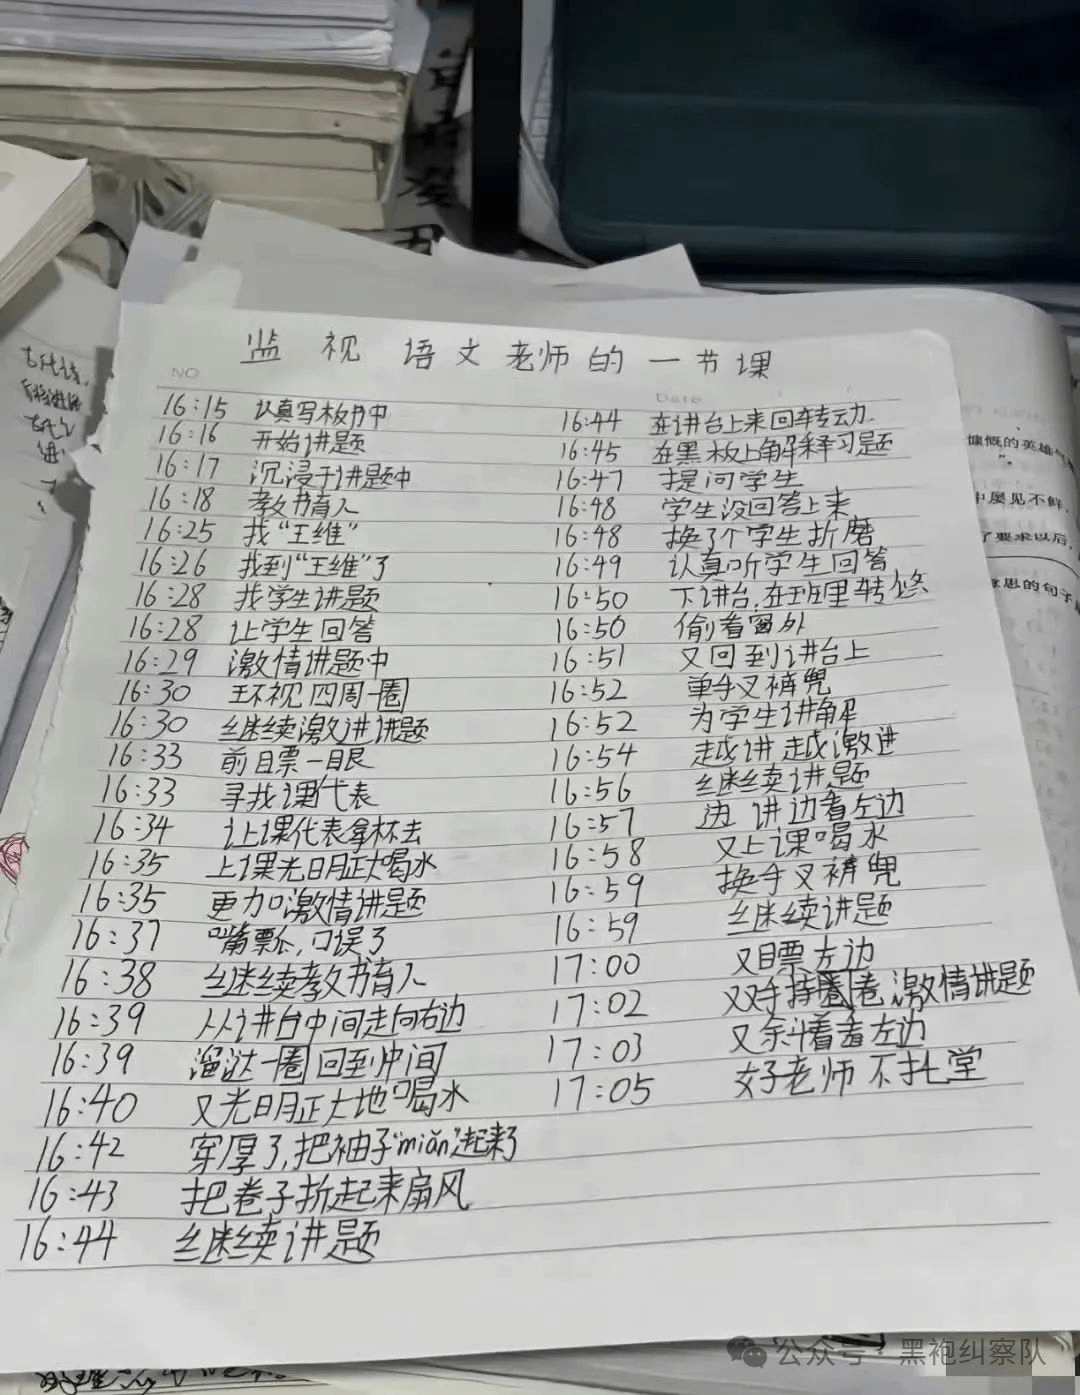 监视语文老师的一节课
NO
Date
16:15 认真写板书中
16:16 开始讲题
16:17 沉浸于讲题中
16:18 教书育人
16:25 找“王维”
16:26 找到“王维”了
16:28 找学生讲题
16:28 让学生回答
16:29 激情讲题中
16:30 环视四周一圈
16:30 继续激进讲题
16:33 前瞟一眼
16:33 寻找课代表
16:34 让课代表拿杯去
16:35 上课光明正大喝水
16:35 更加激情讲题
16:37 嘴瓢,口误了
16:38 继续教书育人
16:39 从讲台中间走向右边
16:39 溜达一圈回到中间
16:40 又光明正大地喝水
16:42 穿厚了,把袖子“miǎn”起来了
16:43 把卷子折起来扇风
16:44 继续讲题
16:44 在讲台上来回转动.
16:45 在黑板上解释习题
16:47 提问学生
16:48 学生没回答上来
16:48 换了个学生折磨
16:49 认真听学生回答
16:50 下讲台,在班里转悠
16:50 偷看窗外
16:51 又回到讲台上
16:52 单手叉裤兜
16:52 为学生讲解
16:54 越讲越激进
16:56 继续讲题
16:57 边讲边看左边
16:58 又上课喝水
16:59 换手叉裤兜
16:59 继续讲题
17:00 又瞟左边
17:02 双手持卷,激情讲题
17:03 又斜着看左边
17:05 女子老师不拖堂
慷慨的英雄气
中屡见不鲜,
了要求以后,
意思的句子
公众号·黑袍纠察队